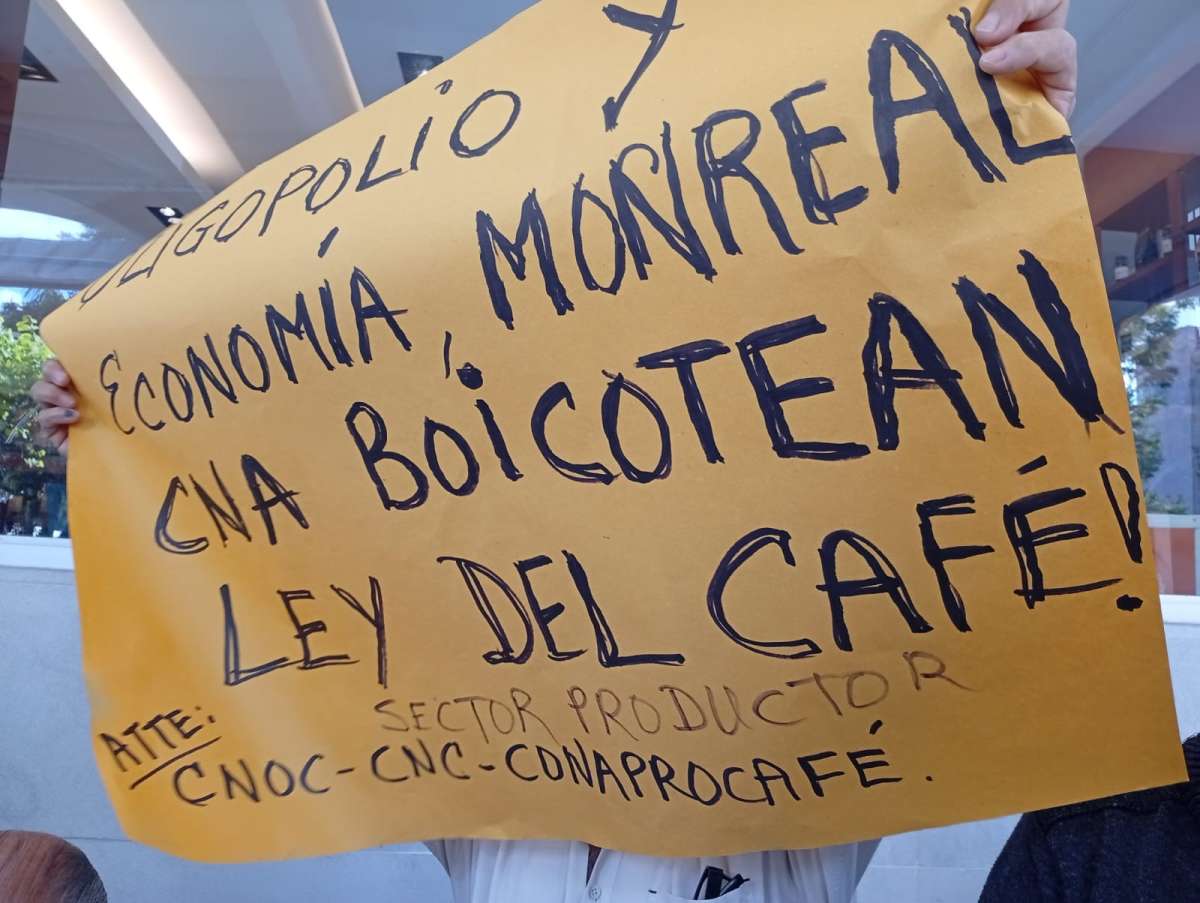 OLIGOPOLIO Y
ECONOMÍA, MONREAL,
CNA BOICOTEAN
LEY DEL CAFÉ!
SECTOR PRODUCTOR
ATTE:
CNOC-CNC-CONAPROCAFÉ.